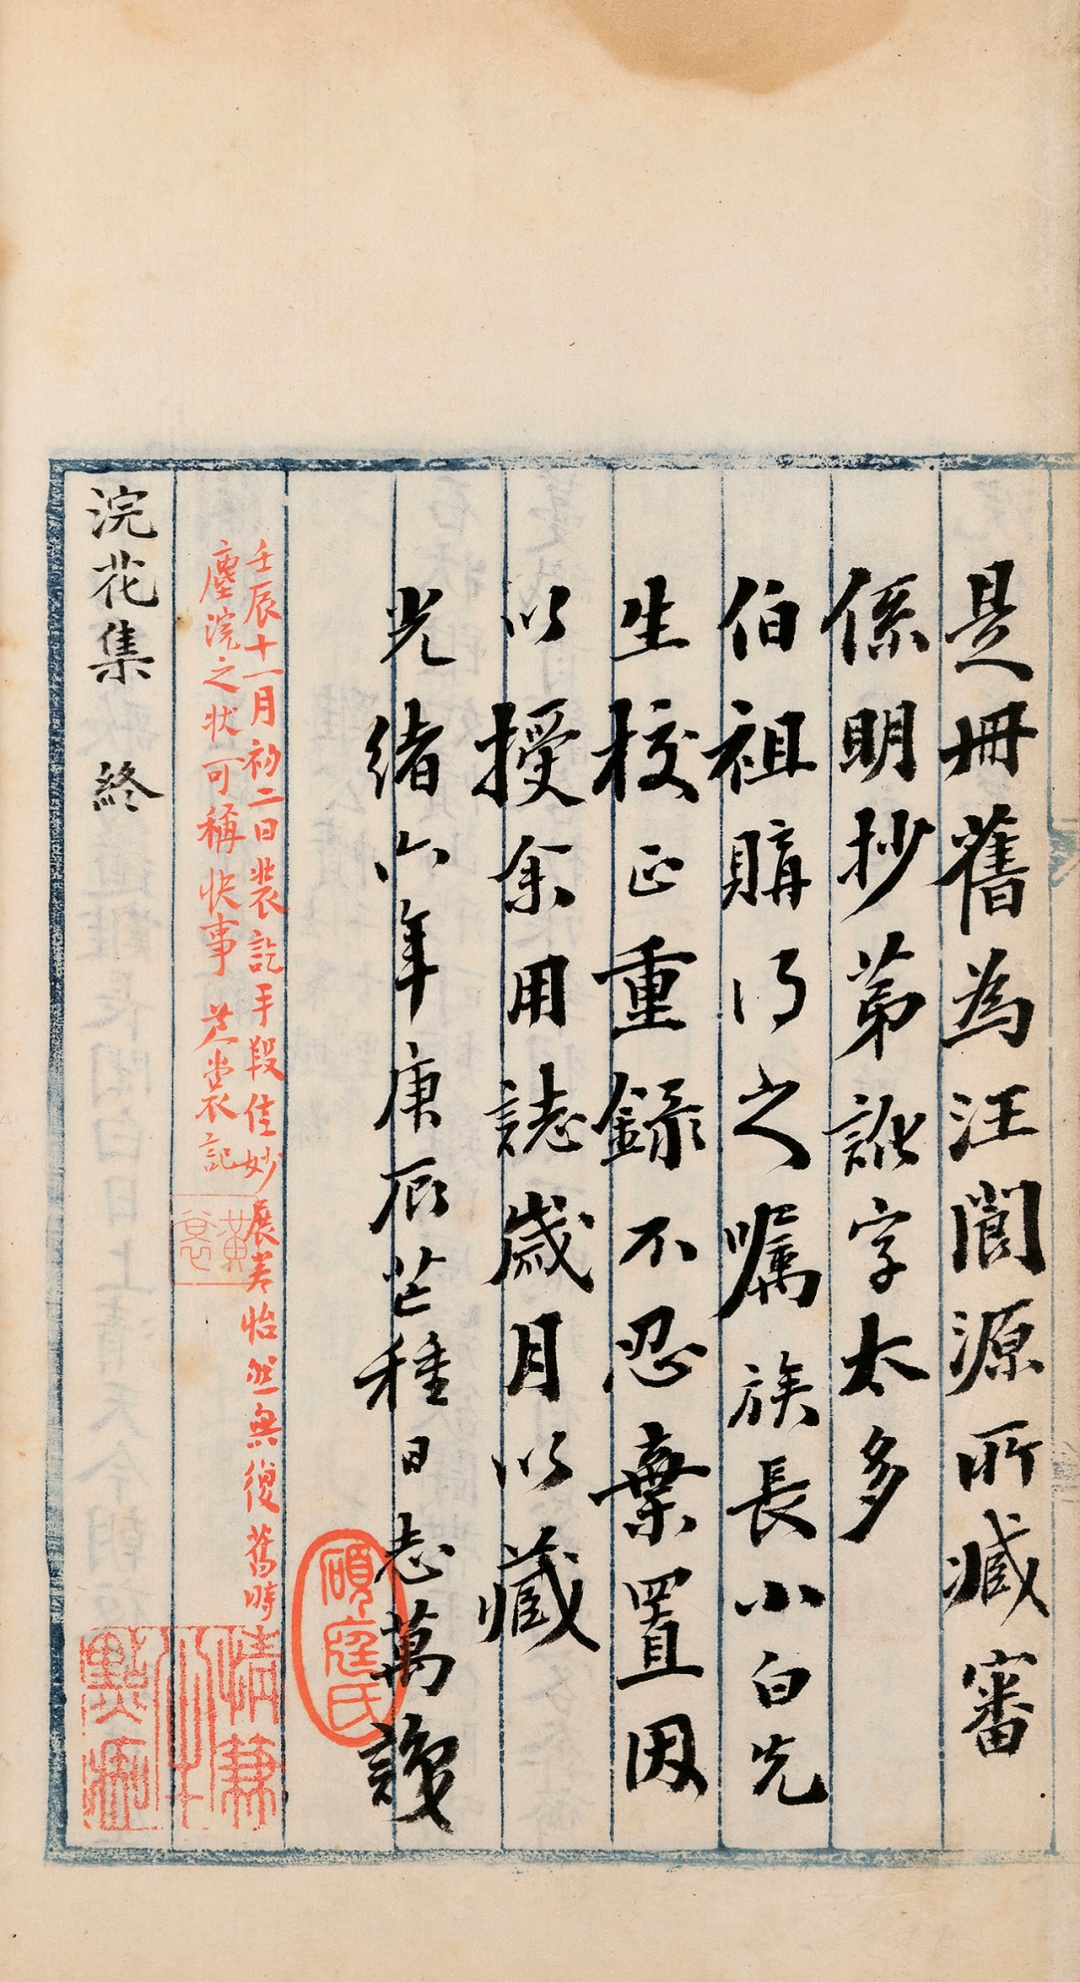 是冊舊為汪閬源所臧審
係明抄苐訛字太多
伯祖購得之嘱族長小白先
生校正重錄不忍棄置因
以授余用誌歲月以藏
光緒六年庚辰芒種日志萬謹
碩庭氏
壬辰十一月初二日裝訖手段佳妙展差怡然無復舊時
塵浣之状可稱快事 裳記
浣花集 終